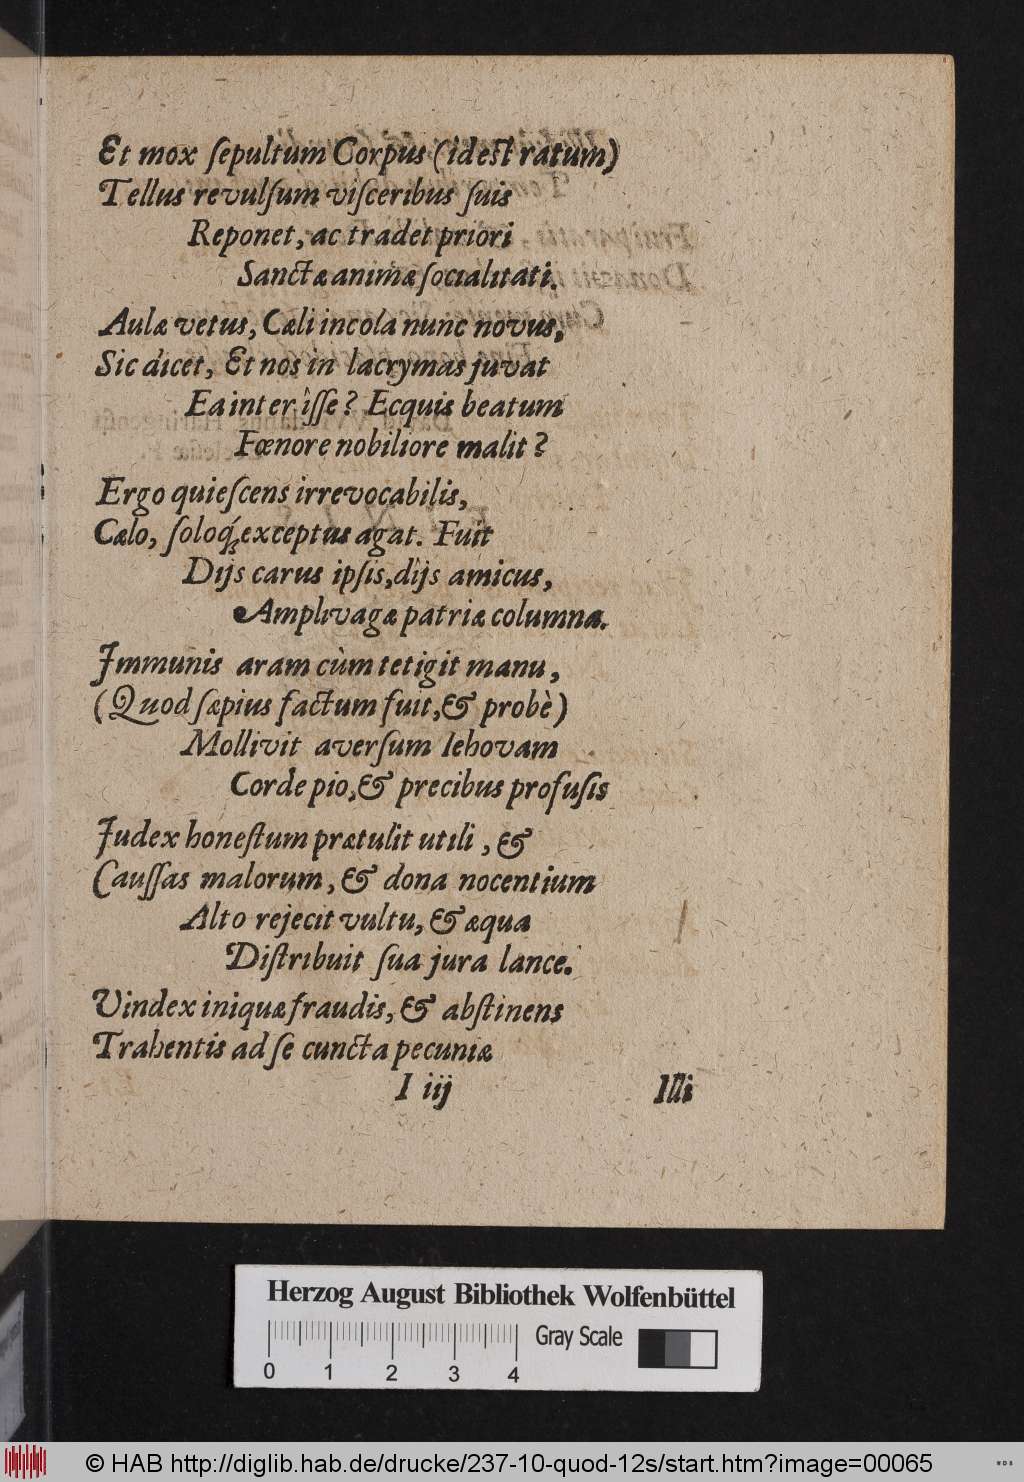 Et mox ſepultum Corpus (ideſt ratum)
Tellus revulſum viſceribus ſuis
Reponet, ac tradet priori
Sanctæ animæ ſocialitati.
Aulæ vetus, Cæli incola nunc novus,
Sic dicet, Et nos in lacrymas juvat
Ea inter îſſe? Ecquis beatum
Fœnore nobiliore malit?
Ergo quieſcens irrevocabilis,
Cælo, ſoloq́; exceptus agat. Fuit
Dijs carus ipſis, dijs amicus,
Amplivagæ patriæ columna.
Immunis aram cùm tetigit manu,
(Quod ſæpius factum fuit, & probè)
Mollivit averſum Iehovam
Corde pio, & precibus profuſis
Judex honeſtum prætulit utili, &
Cauſſas malorum, & dona nocentium
Alto rejecit vultu, & æqua
Diſtribuit ſua jura lance.
Vindex iniquæ fraudis, & abſtinens
Trahentis ad ſe cuncta pecuniæ
I iij Illi
Herzog August Bibliothek Wolfenbüttel
Gray Scale
0 1 2 3 4
© HAB http://diglib.hab.de/drucke/237-10-quod-12s/start.htm?image=00065